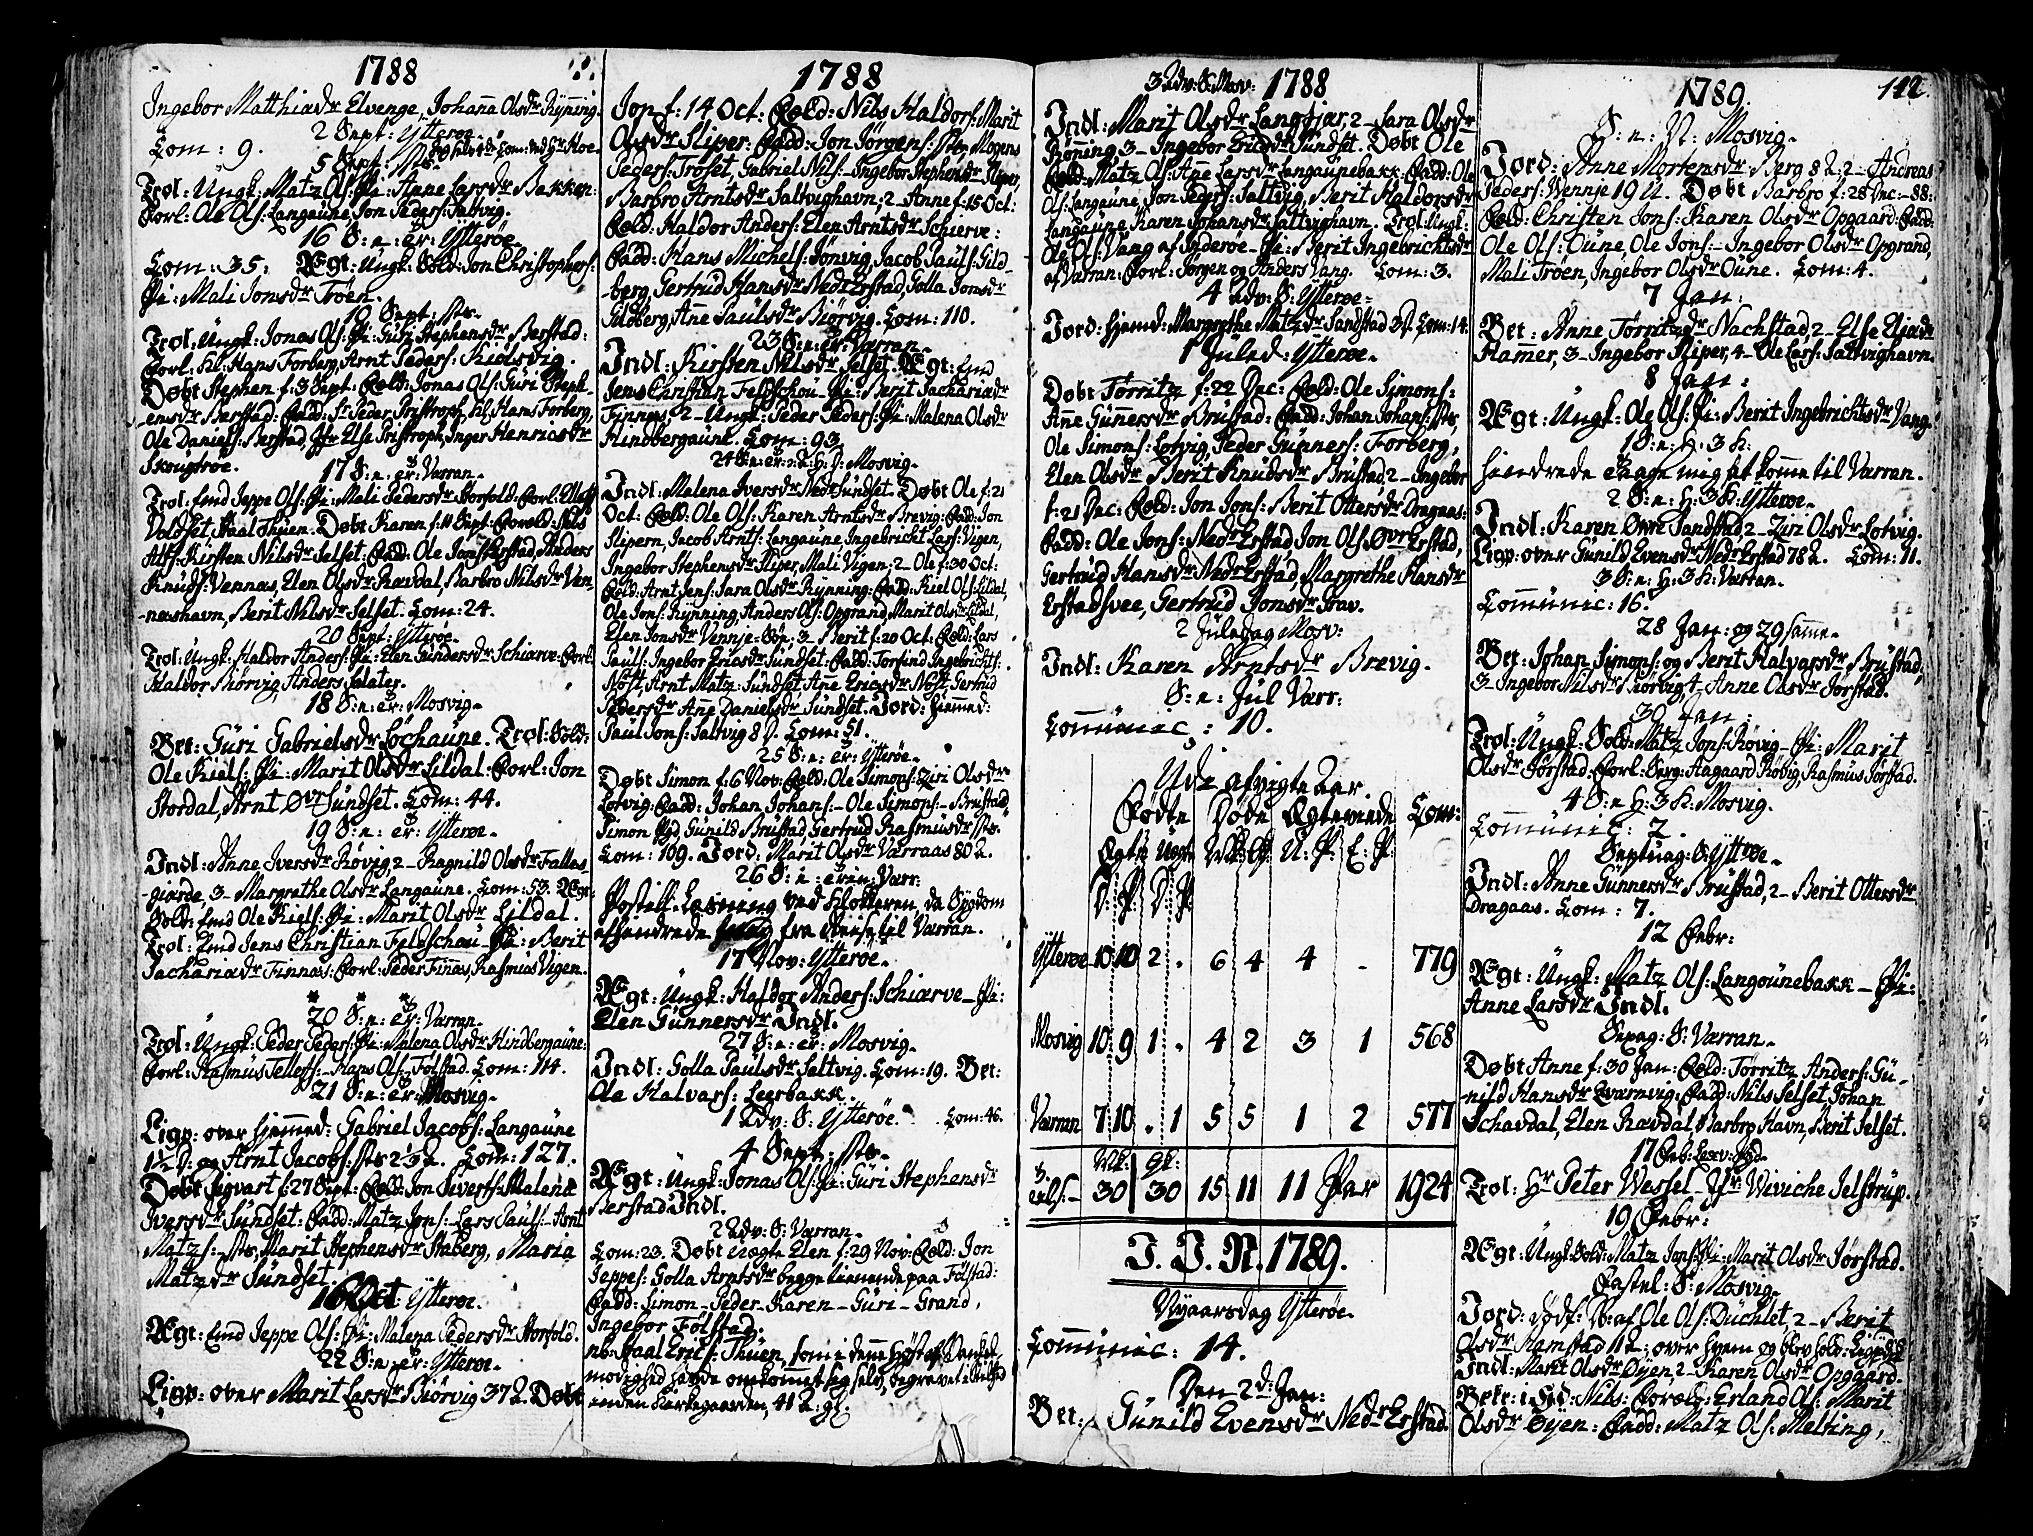 1788
Ingebor Matthiædr Elvenge, Johana Olsdr Rÿnning.
2 Sept: Ytterøe.
Com: 9.
5 Sept: Sts.
Trol: Ungk: Matz Ols: Pi: Anne Larsdr Bakken:
Forl: Ole Ols: Langaune, Jon Peders: Saltvig.
16 S: e: er: Ytterøe.
Com: 35. Ægt: Ungk: Sold: Jon Christophers:
Pi: Mali Jonsdr Trøen.
10 Sept: Sts.
Trol: Ungk: Jonas Ols: Pi: Guri Stephensdr Berstad:
Forl: Kl: Hans Forberg, Arnt Peders: Kiølsvig.
Døbt Stephen f: 3 Sept: Fold: Jonas Ols: Guri Steph-
ensdr Berstad: Fadd: Sr Peder Tristroph, Kl. Hans Forberg,
Ole Daniels: Berstad, Jfr Else Tristroph, Inger Henricsdr
Skrugtrøe.
17 S: e: er: Varran.
Trol: Emd Jeppe Ols: Pi: Mali Pedersdr Storfold: Forl: Ellef
Voldset, Paal Thuen. Døbt Karen f: 11 Sept: Forold: Nils
Alfs: Kirsten Nilsdr Selset: Fadd: Ole Jons: Kirstad, Anders
Knuds: Vennæs, Elen Olsdr Rævdal, Barbro Nilsdr Ven-
-næshavn, Berit Nilsdr Selset. Com: 24.
20 Sept: Ytterøe.
Trol: Ungk: Haldor Anders: Pi: Elen Gundersdr Schiærve: Forl:
Haldor Biørvig, Anders Slater.
18 S: e: er: Mosvig.
Bet: Guri Gabrielsdr Lochaune. Trol: Sold:
Ole Kiels: Pi: Marit Olsdr Lildal: Forl: Jon
Stordal, Arnt Øvr Sundset. Com: 44.
19 S: e: er: Ytterøe.
Indl: Anne Iversdr Røvig, 2 - Ragnild Olsdr Falla-
-gierde, 3 - Margrethe Olsdr Langaune. Com: 53. Ægt:
Sold: Emd Ole Kiels: Pi: Marit Olsdr Lildal.
Trol: Emd Jens Christian Feldschau - Pi: Berit
Zachariædr Finnæs: Forl: Peder Finnæs, Rasmus Vigen.
20 S: e: er: Varran.
Trol: Ungk: Peder Peders: Pi: Malena Olsdr Hindbergaune:
Forl: Rasmus Tellefs: - Hans Ols: Følstad. Com: 114.
21 S: e: er: Mosvig.
Ligp: over hiemmed: Gabriel Jacobs: Langaune
1½ D: og Arnt Jacobs: Sts 2½ D. Com: 127.
Døbt Segvart f: 27 Sept: Fold: Jon Siverts: Malena
Iversdr Sundset: Fadd: Matz Jons: - Lars Pauls: - Arnt
Matzs: - Sts, Marit Stephensdr Staberg, Maria
Matzdr Sundset.
16 Oct: Ytterøe.
Ægt: Emd Jeppe Ols: Pi: Malena Pedersdr Storfold.
22 S: e: er: Ytterøe.
Ligp: over Marit Larsdr Biørvig 37 D. Døbt
1788
Jon f: 14 Oct: Fold: Nils Haldors: Marit
Olsdr Sliper: Fadd: Jon Jørgens: Sts, Mogens
Peders: Trøset, Gabriel Nils: - Ingebor Stephensdr Sliper,
Barbro Arntsdr Saltvighavn; 2 - Anne f: 15 Oct:
Fold: Haldor Anders: Elen Arntsdr Schierve:
Fadd: Hans Michels: Jønvig, Jacob Pauls: Gild-
-berg, Gertrud Hansdr Nedr Erstad, Golla Jonsdr
Gildberg, Ane Paulsdr Biørvig. Com: 110.
23 S: e: er: Varran.
Indl: Kirsten Nilsdr Selset. Ægt: Emd
Jens Christian Feldschou - Pi: Berit Zachariædr
Finnæs, 2 - Ungk: Peder Peders: Pi: Malena Olsdr
Hindbergaune. Com: 93.
24 S: e: er: Mosvig.
Indl: Malena Iversdr Nedr Sundset. Døbt Ole f: 21
Oct: Fold: Ole Ols: Karen Arntsdr Brevig: Fadd: Jon
Slipern, Jacob Arnts: Langaune Ingebricht Lars: Vigen,
Ingebor Stephensdr Sliper, Mali Vigen; 2 - Ole f: 30 Oct:
Fold: Arnt Jens: Sara Olsdr Rynning: Fadd: Kiel Ols: Lildal,
Ole Jons: Rynning, Anders Ols: Opgrand, Marit Olsdr Lildal,
Elen Jonsdr Vennje; 3 - Berit f: 20 Oct: Fold: Lars
Pauls: Ingebor Ericsdr Sundset: Fadd: Torsind Ingebrichts:
Nøst, Arnt Matz: Sundset, Ane Ericsdr Nøst, Gertrud
Pedersdr Ane Danielsdr Sundset. Jord: hiemmed:
Paul Jons: Saltvig 8 D. Com: 51.
25 S: e: er: Ytterøe.
Døbt Simon f: 6 Nov: Fold: Ole Simons: Ziri Olsdr
Lotvig: Fadd: Johan Johans: - Ole Simons: - Brustad,
Simon Ryd, Gunild Brustad, Gertrud Rasmusdr Sts.
Com: 109. Jord: Marit Olsdr Varraas 80 D.
26 S: e: Trin: Varr:
Postill Læsning ved Klokkeren, da Sygdom
afhindrede mig fra Reise til Varran.
17 Nov: Ytterøe.
Ægt: Ungk: Haldor Anders: Schiærve - Pi:
Elen Gunnersdr Indl.
27 S: e: er: Mosvig.
Indl: Golla Paulsdr Saltvig. Com: 19. Bet:
Ole Halvars: Leerbakk.
1 Adv: S: Ytterøe. Com: 46.
4 Sept: Sts.
Ægt: Ungk: Jonas Ols: Pi: Guri Stephensdr
Berstad Indl.
2 Adv: S: Varran.
Com: 23. Døbt uægte Elen f: 29 Nov: Fold: Jon
Jeppes: Golla Arntsdr begge tienende paa Følstad:
Fadd: Simon - Peder - Karen - Guri - Grand,
Ingebor Følstad.
nb: Paal Erics: Thuen, som i denne Høst af Vanke-
modighed havde omkommet sig selv, begravet i Stilhed
inden Kirkegaarden, 41 D. gl.
3 Adv: S: Mosv: 1788
Indl: Marit Olsdr Langhiar, 2 - Sara Olsdr
Rønning 3 - Ingebor Ericsdr Sundset. Døbt Ole
Fold: Matz Ols: Ane Larsdr Langaunebakk: Fadd: Ole
Ols: Langaune, Jon Peders: Saltvig, Berit Haldorsdr
Langaune Karen Johansdr Saltvighavn. Trol: Ungk:
Ole Ols: Vang af Inderøe - Pi: Berit Ingebrichtsdr
af Varran: Forl: Jørgen og Anders Vang. Com: 3.
4 Adv: S: Ytterøe.
Jord: hjemd: Margrethe Matzdr Sandstad 3 D. Com: 14.
1 Juled: Ytterøe.
Døbt Torritz f: 22 Dec: Fold: Ole Simons:
Ane Gunnersdr Brustad: Fadd: Johan Johans: Sts,
Ole Simons: Lotvig, Peder Gunners: Forberg,
Elen Olsdr Berit Knudsdr Brustad, 2 - Ingebor
f: 21 Dec: Fold: Jon Jons: Berit Ottersdr Dragaas:
Fadd: Ole Jons: Nedr Erstad, Jon Ols: Øvr Erstad,
Gertrud Hansdr Nedr Erstad, Margrethe Hansdr
Erstadsvee, Gertrud Jonsdr Trav.
2 Juledag Mosv:
Indl: Karen Arntsdr Brevig.
S: e: Jul Varr:
Communic: 10.
Udi afvigte Aar
Fødte Døde Ægteviede Com:
Ægte Uægte Mk: Qk: U: P: E: P:
D. P. D. P.
Ytterøe 10 10 2 . 6 4 4 - 779
Mosvig 10 9 1 . 4 2 3 1 568
Varran 7 10 . 1 5 5 1 2 577
Mk: Qk:
30 30 15 11 11 Par 1924
I. J. N. 1789.
Nyaarsdag Ytterøe.
Communic: 14.
Den 2d: Jan:
Bet: Gunild Evensdr Nedr Erstad.
1789. 142.
S: e: N: Mosvig.
Jord: Anne Mortensdr Berg 8 D. 2 - Andreas
Peders: Vennje 19 U. Døbt Barbro f: 28 Dec: - 88:
Fold: Christen Jons: Karen Olsdr Opgaard: Fadd:
Ole Ols: Oune, Ole Jons: - Ingebor Olsdr Opgrand,
Mali Trøen, Ingebor Olsdr Oune. Com: 4.
7 Jan:
Bet: Anne Torritzdr Nachstad, 2 - Else Eliædr
Hamer, 3 - Ingebor Sliper, 4 - Ole Lars: Saltvighavn.
8 Jan:
Ægt: Ungk: Ole Ols: Pi: Berit Ingebrichtsdr Vang.
1 S: e: H: 3 K:
hindrede Aage mig at komme til Varran.
2 S: e: H: 3 K: Ytterøe.
Indl: Karen Øvre Sandstad, 2 - Ziri Olsdr Lotvig.
Ligp: over Gunild Evensdr Nedr Erstad 78 D. Com: 11.
3 S: e: H: 3 K: Varran.
Communic: 16.
28 Jan: og 29 samme.
Bet: Johan Simons: og Berit Halvarsdr Brustad,
3 - Ingebor Nilsdr Biørvig 4 - Anne Olsdr Jørstad.
30 Jan:
Trol: Ungk: Sold: Matz Jons: Røvig - Pi: Marit
Olsdr Jørstad: Forl: Serg: Aagaard Røvig, Rasmus Jørstad.
4 S: e: H: 3 K: Mosvig.
Communic: 2.
Septuag: S: Ytterøe.
Indl: Anne Gunnersdr Brustad, 2 - Berit Ottersdr
Dragaas. Com: 7.
12 Febr:
Ægt: Ungk: Matz Ols: Langounebakk - Pi:
Anne Larsdr Indl.
Sexag: S: Varran.
Døbt Anne f: 30 Jan: Fold: Tørritz Anders: Gu-
-nild Hansdr Qvarnvig: Fadd: Nils Selset Johan
Schavdal, Elen Rævdal, Barbro Havn, Berit Selset.
17 Feb:
Trol: Hr Peter Wessel - Jfr Wiviche Jelstrup.
19 Febr:
Ægt: Ungk: Sold: Matz Jons: Pi: Marit Olsdr Jørstad.
Fastel: S: Mosvig.
Jord: dødf: B: af Ole Ols: Duchlet, 2 - Berit
Olsdr Hamstad 11 D: over hvem og blev hold: Ligpræd:
Indl: Marit Olsdr Øyen, 2 - Karen Olsdr Opgaard.
Bekr: i Daab: Nils: Foræld: Erland Ols: Marit
Olsdr Øyen: Fadd: Matz Ols: Melting,